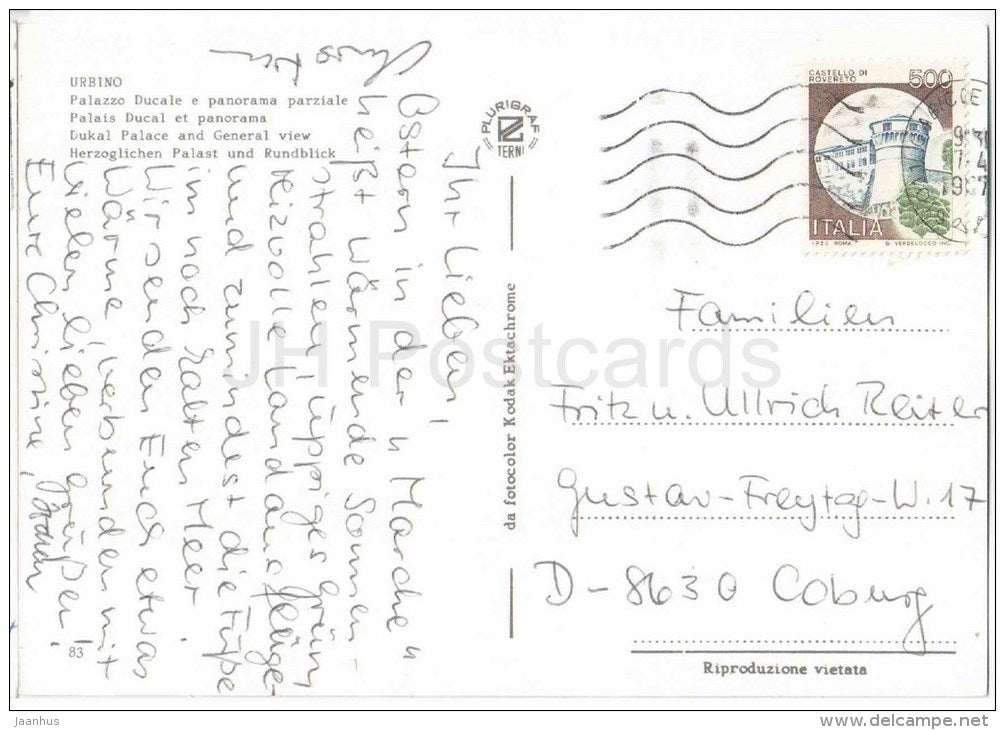 URBINO
Palazzo Ducale e panorama parziale
Palais Ducal et panorama
Dukal Palace and General view
Herzoglichen Palast und Rundblick
PLURIGRAF
TERNI
CASTELLO DI
ROVERETO
500
ITALIA
I.P.Z.S. ROMA
G. VERSELOCCO INC.
Ihr Lieben!
Ostern in der "Marche"
heißt wärmende Sonnen-
strahlen, üppiges Grün
reizvolle Landausflüge
und zumindest die Füße
in noch kalten Meer.
Wir senden Euch etwas
Wärme, verbunden mit
vielen lieben Grüßen!
Eure Christine,
Familien
Fritz u. Ullrich Reiter
Gustav-Freytag-W. 17
D-8630 Coburg
da fotocolor Kodak Ektachrome
Riproduzione vietata
83
JH Postcards
jaanhus
www.delcampe.net